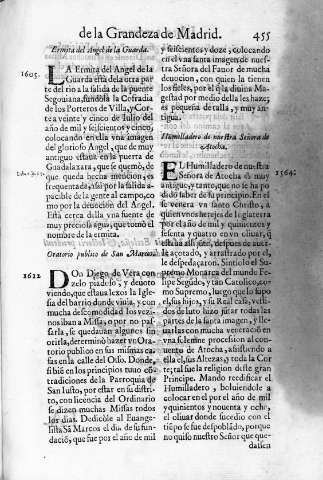 de la Grandeza de Madrid. 455
Ermita del Angel de la Guarda.
1605.
LA Ermita del Angel de la
Guarda està dela otra par
te del rio a la salida de la puente
Segouiana, fundòla la Cofradia
de los Porteros de Villa, y Cor-
te veinte y cinco de Iulio del
año de mil y seiscientos y cinco,
colocando en ella vna imagen
del glorioso Angel, que de muy
antiguo estaua en la puerta de
Guadalaxara, que se quemò, de
que queda hecha mencion, es
frequentada, assi por la salida a-
pacible de gente al campo, co
mo por la deuocion del Angel.
Està cerca della vna fuente de
muy preciosa agua, que tomò el
nombre de la ermita.
Oratorio publico de San Marcos.
1612
DOn Diego de Vera con
zelo piadoso, y deuoto
viendo, que estaua lexos la Igle
sia del barrio donde viuia, y con
mucha descomodidad los vezi-
nos iban a Missa, o por no pas-
sarla, se quedauan algunos sin
oirla, determinò hazer vn Ora-
torio publico en sus mismas ca-
sas en la calle del Osso. Donde,
si bien a los principios tuuo con
tradiciones de la Parroquia de
San Iusto, por estar en su distri-
to, con licencia del Ordinario
se dizen muchas Missas todos
los dias. Dedicòle al Euange-
lista Sã Marcos el dia de su fun-
daciõ, que fue por el año de mil
y seiscientos y doze, colocando
en el vna santa imagen de nues-
tra Señora del Fauor de mucha
deuocion, con quien la tienen
los fieles, por el qũe la diuina Ma-
gestad por medio della les haze;
es pequeña de talla, y muy an-
tigua.
Humilladero de nuestra Señora de
Atocha.
1564.
EL Humilladero de nuestra
Señora de Atocha es muy
antiguo; y tanto, que no se ha po
dido saber de su principio. En el
se venera vn santo Christo, a
quien vnos hereges de Inglaterra
por el año de mil y quinientos y
sesenta y quatro en vn oliuar, que
estaua alli junto, despues de auer
le açotado, y arrastrado por el,
le despedaçaron. Sintiolo el Su-
premo Monarca del mundo Fe-
lipe Segundo, y tan Catolico, co-
mo Supremo, luego que lo supo
el, sus hijos, y su Real casa, vesti-
dos de luto hizo juntar todas las
partes de la santa imagen, y lle-
uarlas con mucha veneraciõ en
vna solemne procession al con-
uento de Atocha, assistiendo a
ella el, sus Altezas, y toda la Cor
te; tal fue la religion deste gran
Principe. Mandò redificar el
Humilladero, y boluiendole a
colocar en el por el año de mil
y quinientos y nouenta y ocho,
el oliuar donde sucediò con el
tiẽpo se fue despoblado, porque
no quiso nuestro Señor que que-
dassen